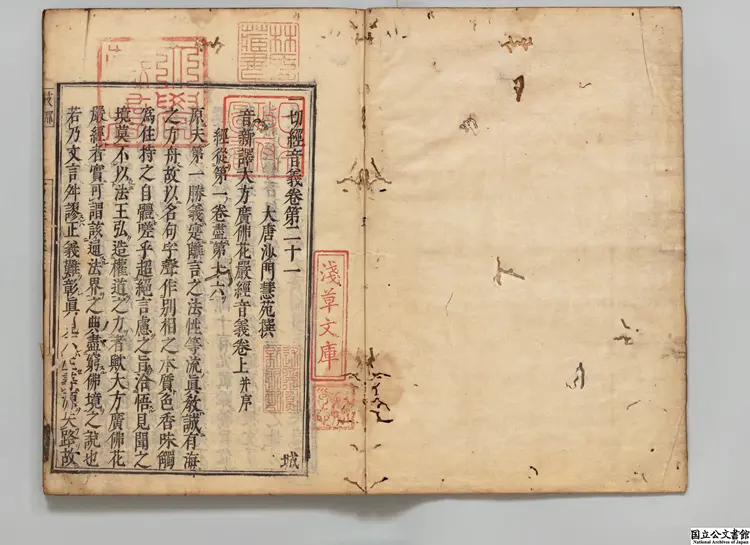 一切經音義卷第二十一
大唐沙門慧苑撰
音新譯大方廣佛花嚴經音義卷上并序
經從第一卷盡第十六
城
原夫第一勝義寔離言之法性等流眞教誠有海
之方舟故以名句字聲作別相之本質色香味觸
爲住持之自體嗟乎超經言慮之旨洽悟見聞之
境莫不以法王弘造權道之力者歟大方廣佛花
嚴經者實可謂該通法界之典盡窮佛境之說也
若乃文言舛謬正義難彰眞
源失路故
淺草文庫
国立公文書館
National Archives of Japan